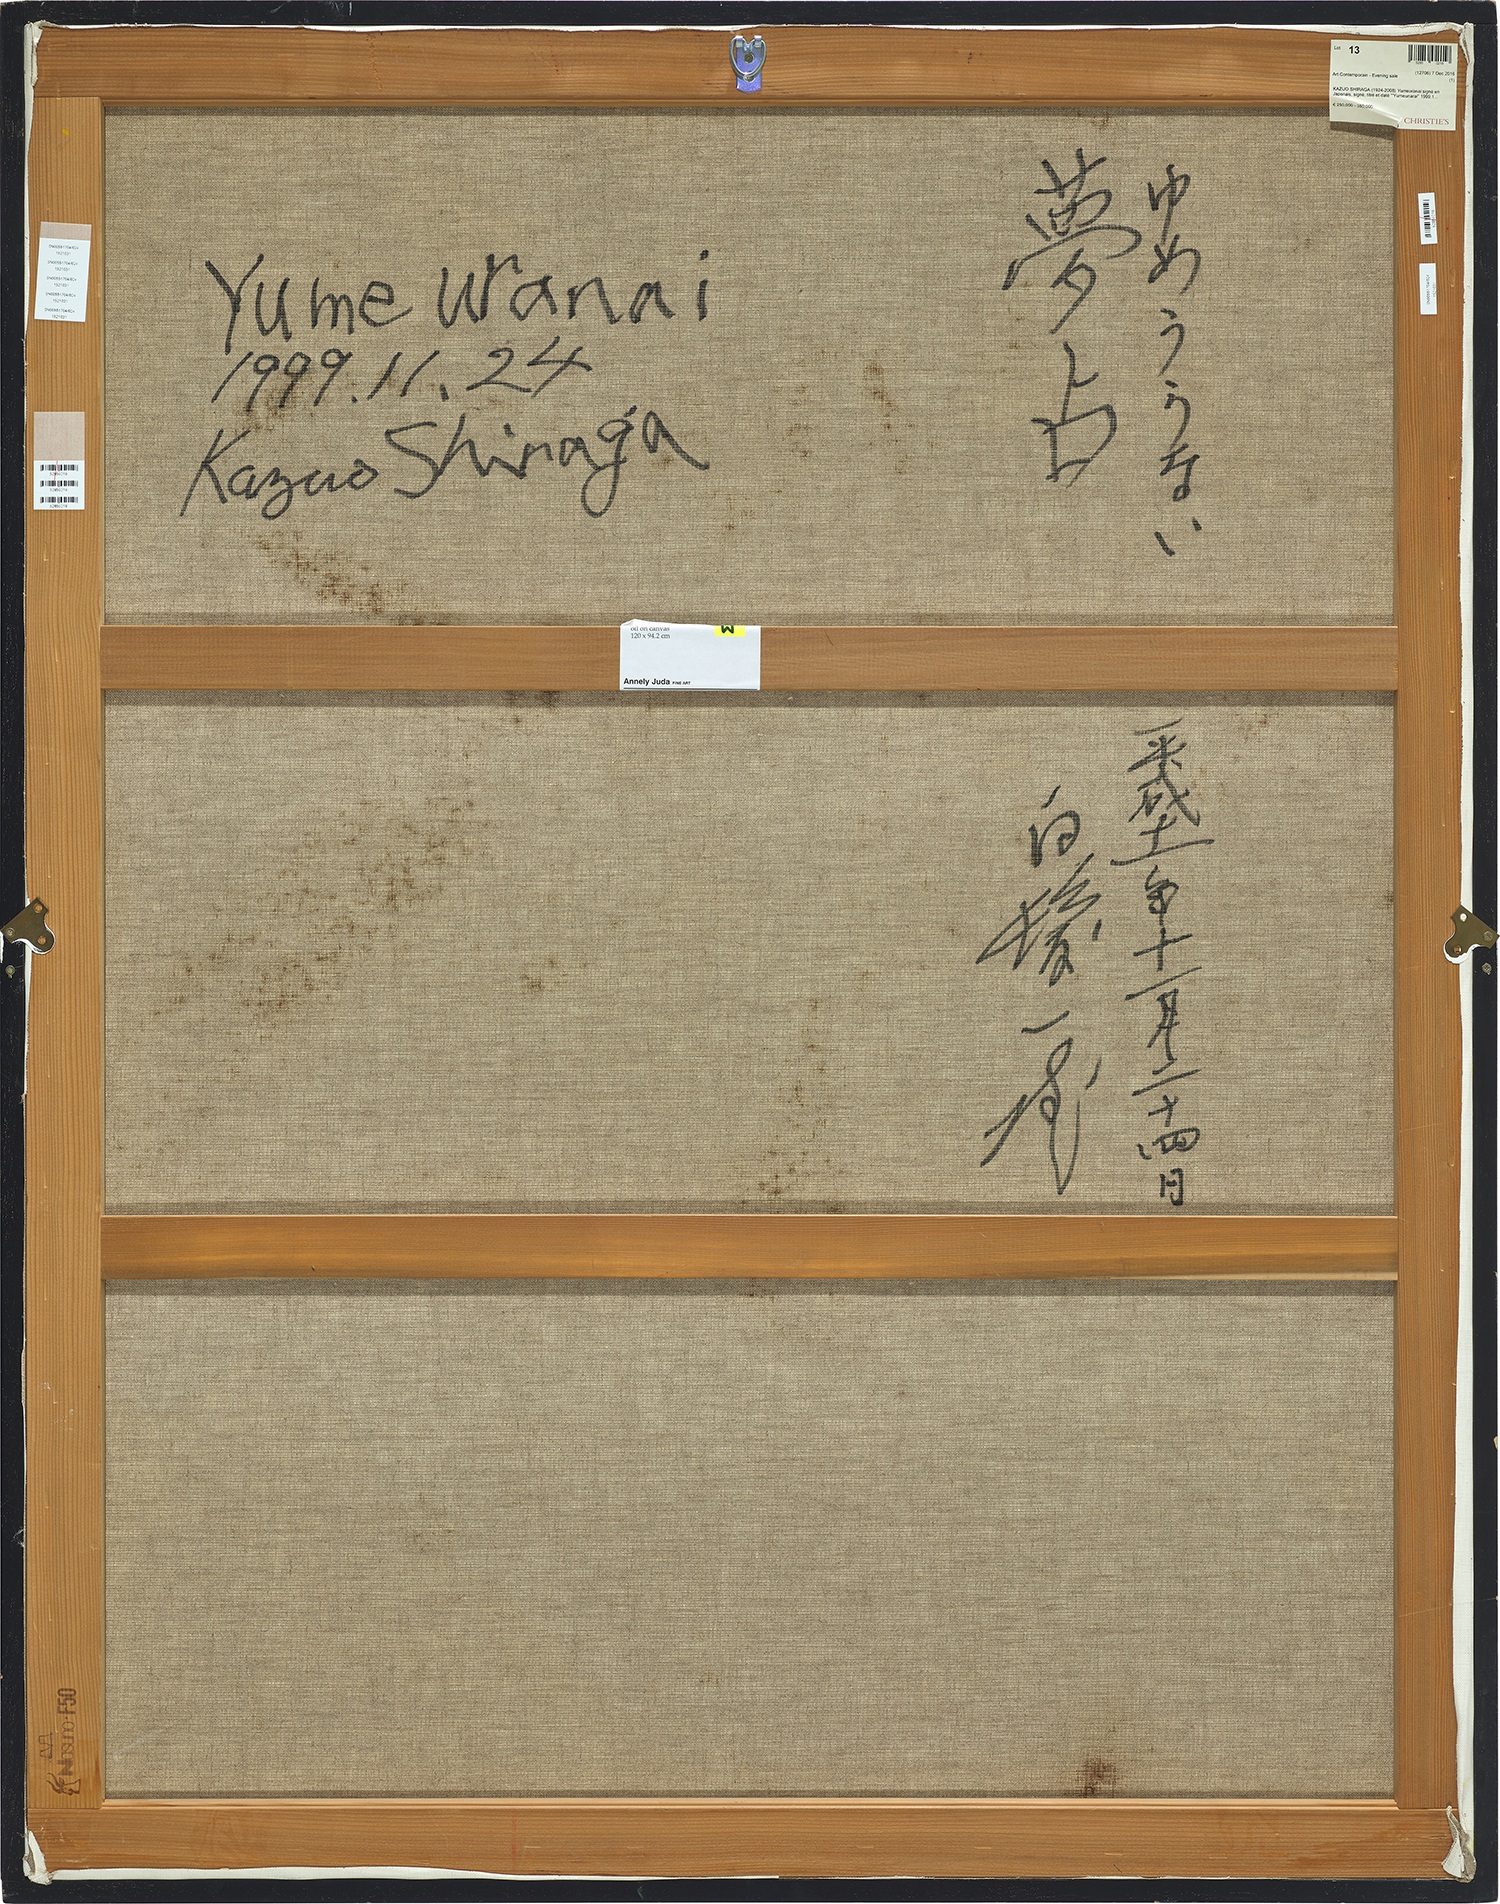 Lot 13
Art Contemporain - Evening sale
(12706) 7 Dec 2016
(1)
KAZUO SHIRAGA (1924-2008) Yumeuranai signé en
Japonais, signé, titré et daté "'Yumeuranai' 1999.1...
CHRISTIE'S
Yume Uranai
1999.11.24
Kazuo Shiraga
ゆめうらない
夢占
oil on canvas
120 x 94.2 cm
3
Annely Juda FINE ART
平成十一年十一月二十四日
白髪一雄
F50